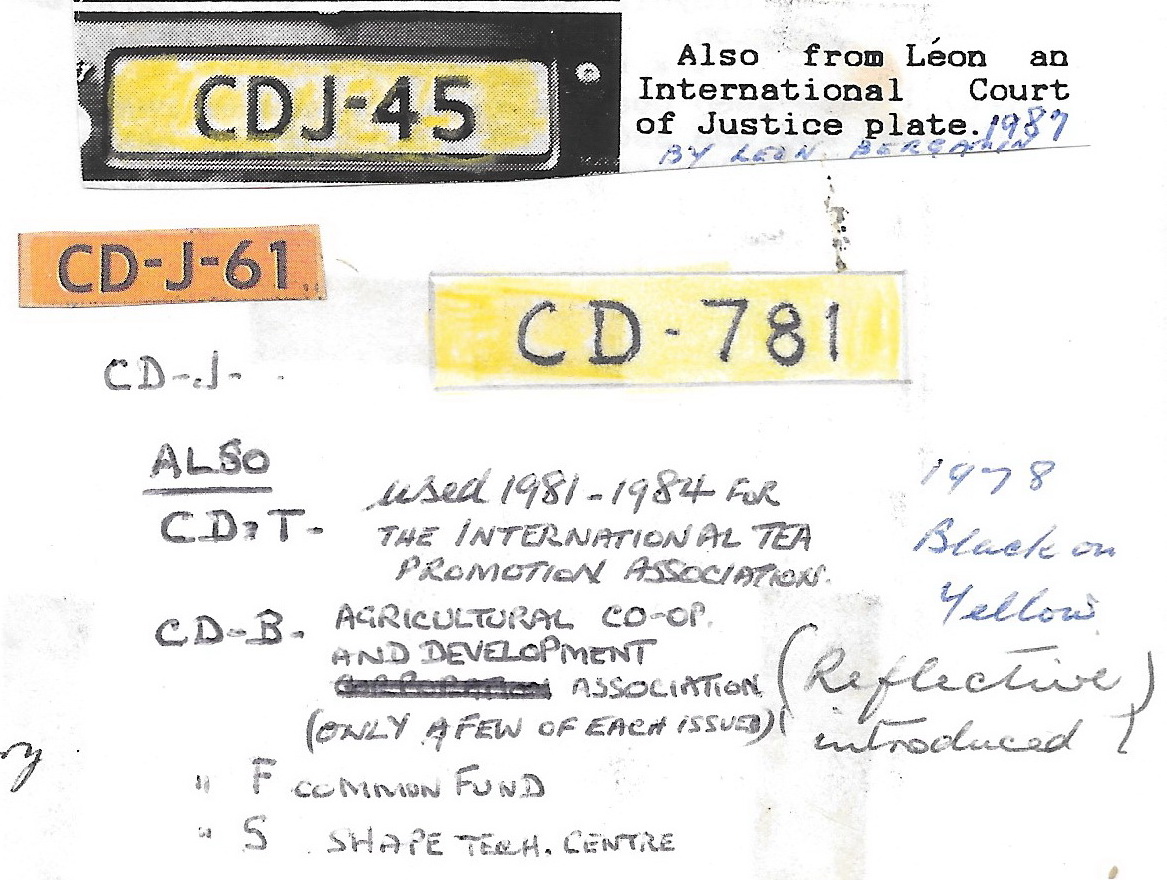 CDJ-45
Also from Léon an
International Court
of Justice plate. 1987
BY LEON BERGAMIN
CD-J-61
CD-781
CD-J-
ALSO
CD-T- used 1981-1984 FOR
THE INTERNATIONAL TEA
PROMOTION ASSOCIATION.
1978
Black on
Yellow
CD-B- AGRICULTURAL CO-OP.
AND DEVELOPMENT
ASSOCIATION
(ONLY A FEW OF EACH ISSUED)
(Reflective)
introduced
" F COMMON FUND
" S SHAPE TECH. CENTRE